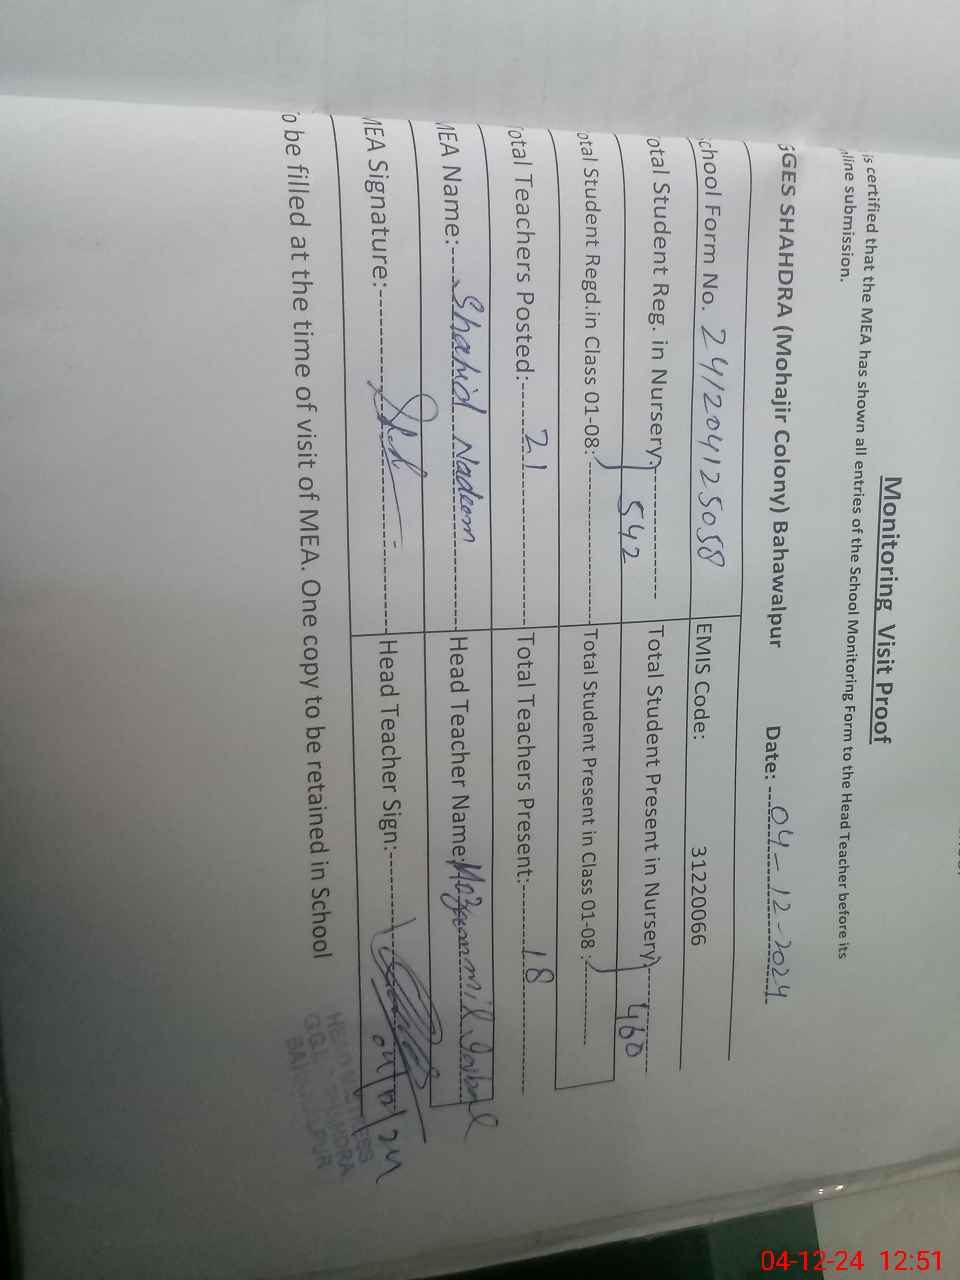 Monitoring Visit Proof
is certified that the MEA has shown all entries of the School Monitoring Form to the Head Teacher before its
nline submission.
GGES SHAHDRA (Mohajir Colony) Bahawalpur Date: 04-12-2024
chool Form No. 241204125058 EMIS Code: 31220066
otal Student Reg. in Nursery: 542 Total Student Present in Nursery 460
otal Student Regd.in Class 01-08: Total Student Present in Class 01-08 :
otal Teachers Posted: 21 Total Teachers Present: 18
MEA Name: Shahid Nadeem Head Teacher Name: Mozammil
MEA Signature: Head Teacher Sign:
04/12/24
o be filled at the time of visit of MEA. One copy to be retained in School
SHAHDRA
04-12-24 12:51